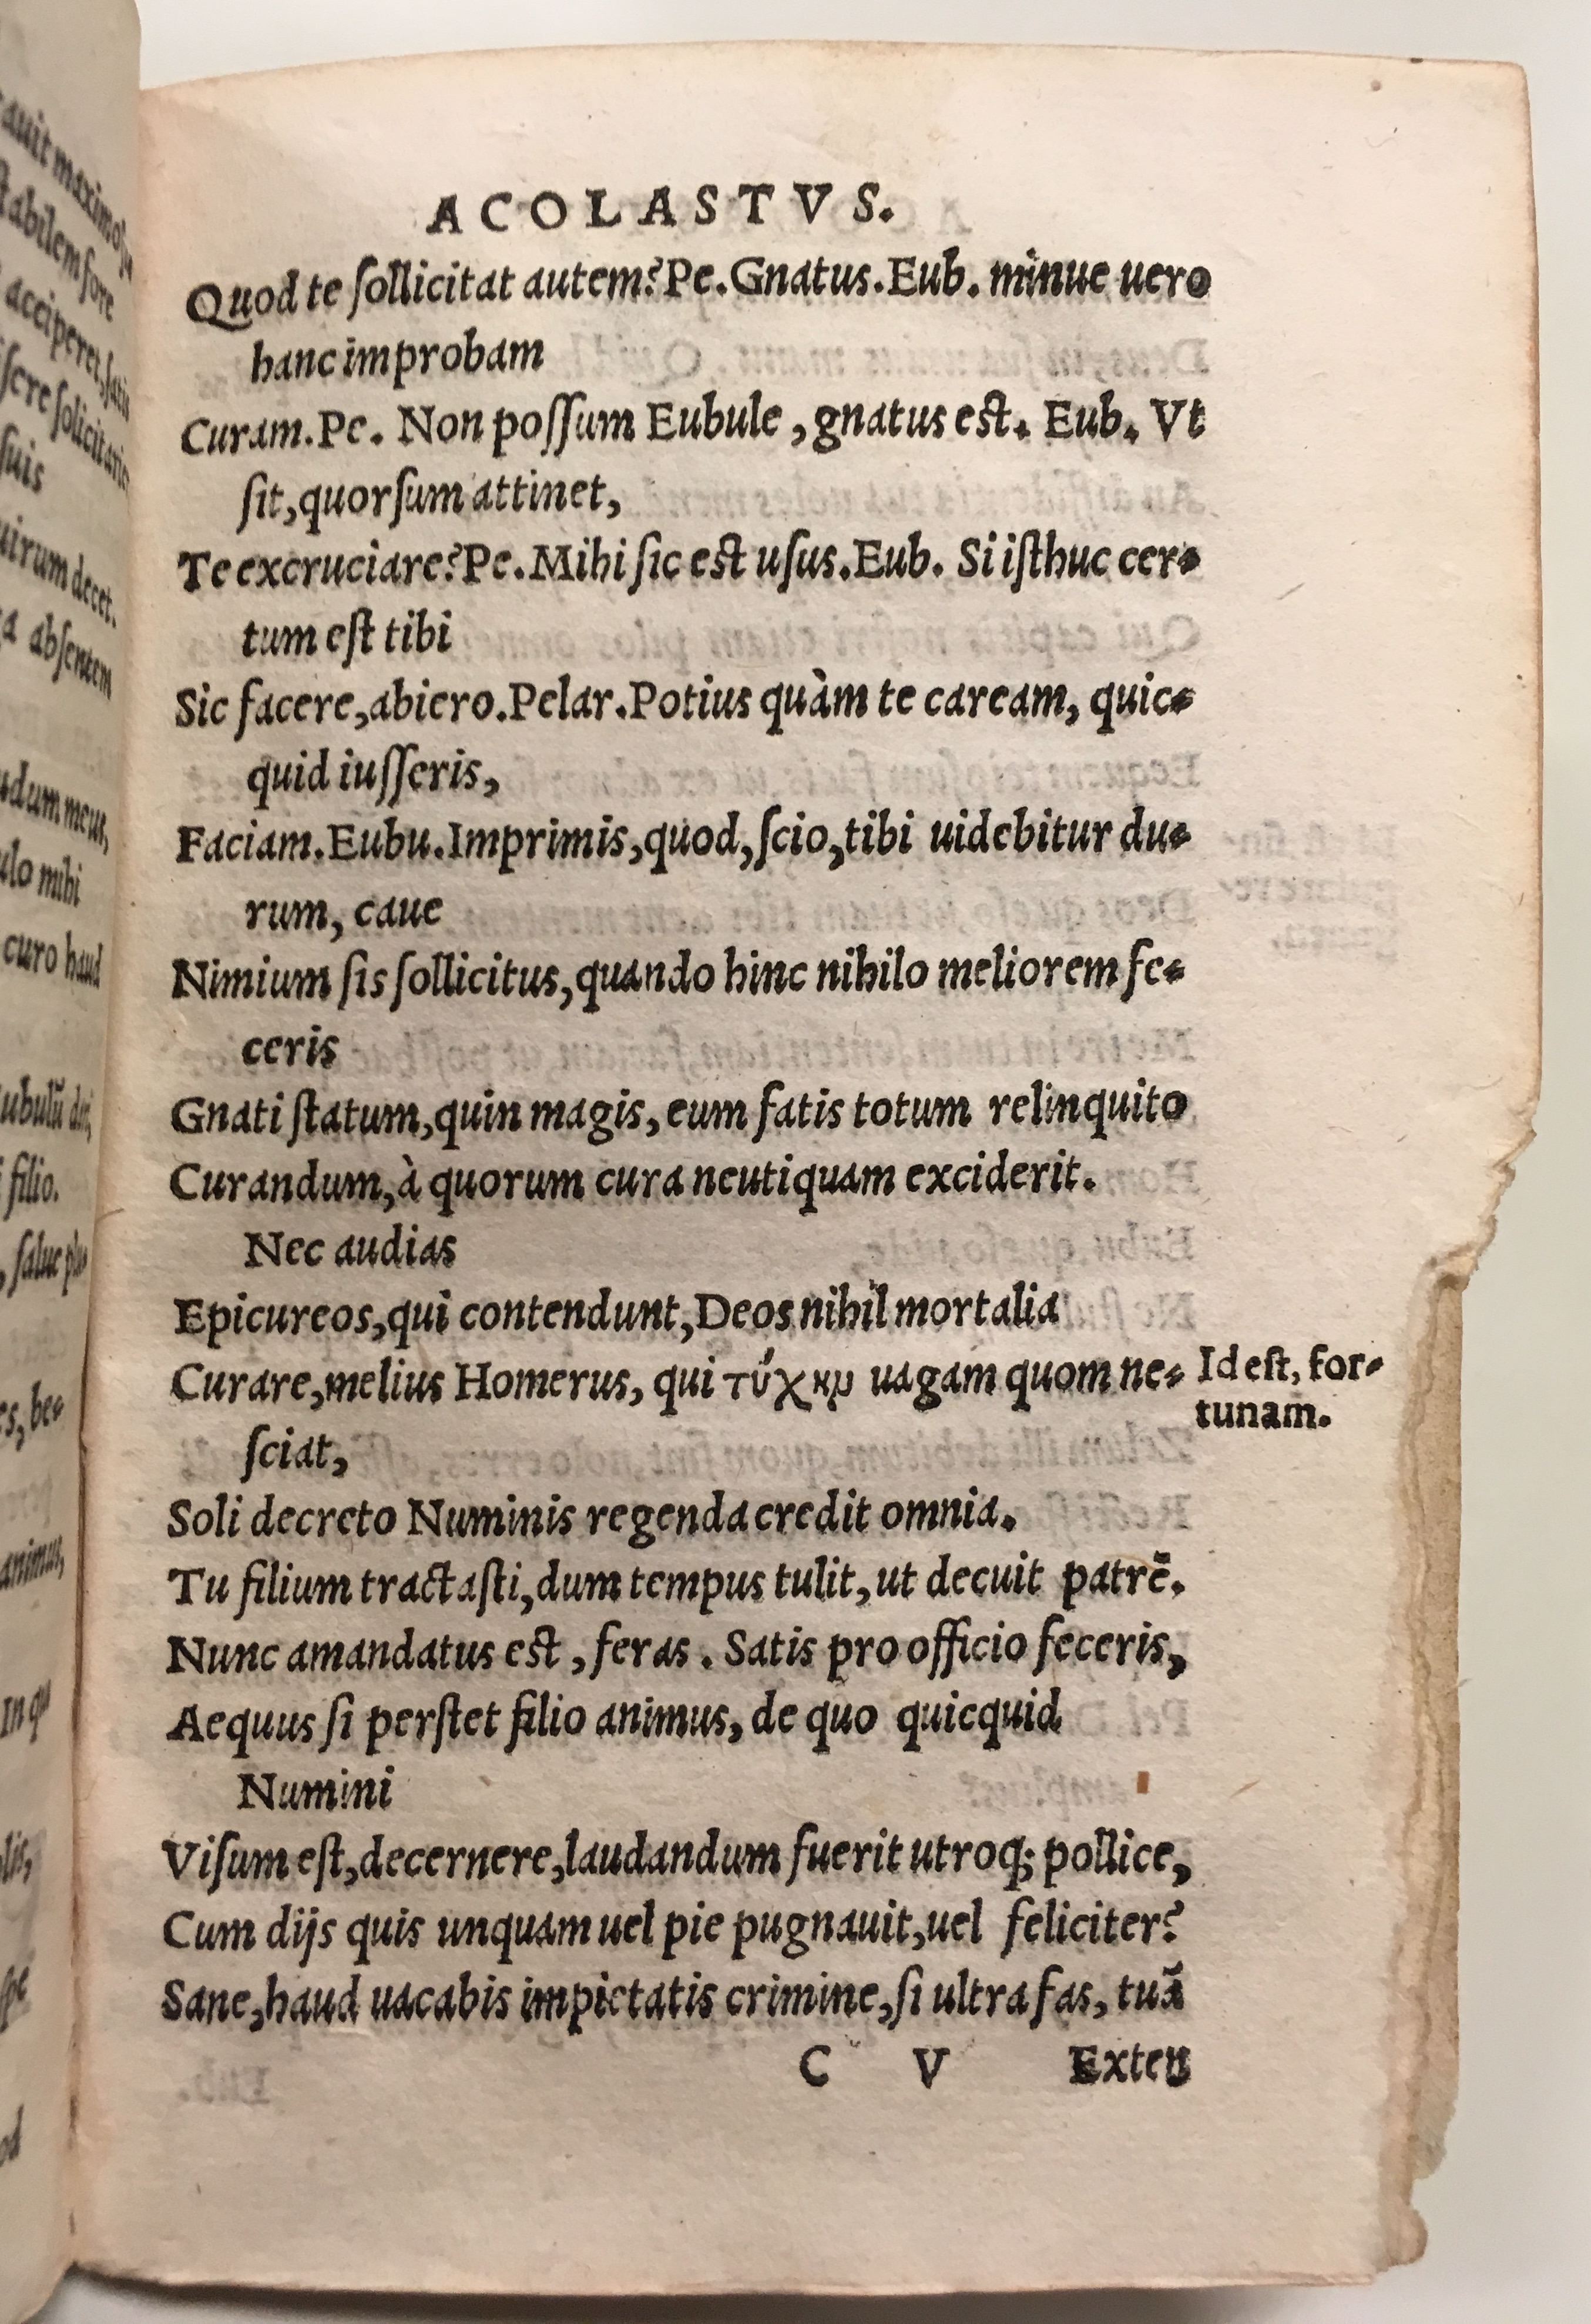 ACOLASTVS.
Quod te ſollicitat autem? Pe. Gnatus. Eub. minue uero
hanc improbam
Curam. Pe. Non poſſum Eubule, gnatus eſt. Eub. Vt
ſit, quorſum attinet,
Te excruciare? Pe. Mihi ſic eſt uſus. Eub. Si iſthuc cer-
tum eſt tibi
Sic facere, abiero. Pelar. Potius quàm te caream, quic-
quid iuſſeris,
Faciam. Eubu. Imprimis, quod, ſcio, tibi uidebitur du-
rum, caue
Nimium ſis ſollicitus, quando hinc nihilo meliorem fe-
ceris
Gnati ſtatum, quin magis, eum fatis totum relinquito
Curandum, à quorum cura neutiquam exciderit.
Nec audias
Epicureos, qui contendunt, Deos nihil mortalia
Curare, melius Homerus, qui τύχην uagam quom ne-
ſciat,
Id eſt, for-
tunam.
Soli decreto Numinis regenda credit omnia.
Tu filium tractaſti, dum tempus tulit, ut decuit patrẽ.
Nunc amandatus eſt, feras. Satis pro officio feceris,
Aequus ſi perſtet filio animus, de quo quicquid
Numini
Viſum eſt, decernere, laudandum fuerit utroq; pollice,
Cum dijs quis unquam uel pie pugnauit, uel feliciter?
Sane, haud uacabis impietatis crimine, ſi ultra fas, tuã
C V Exten